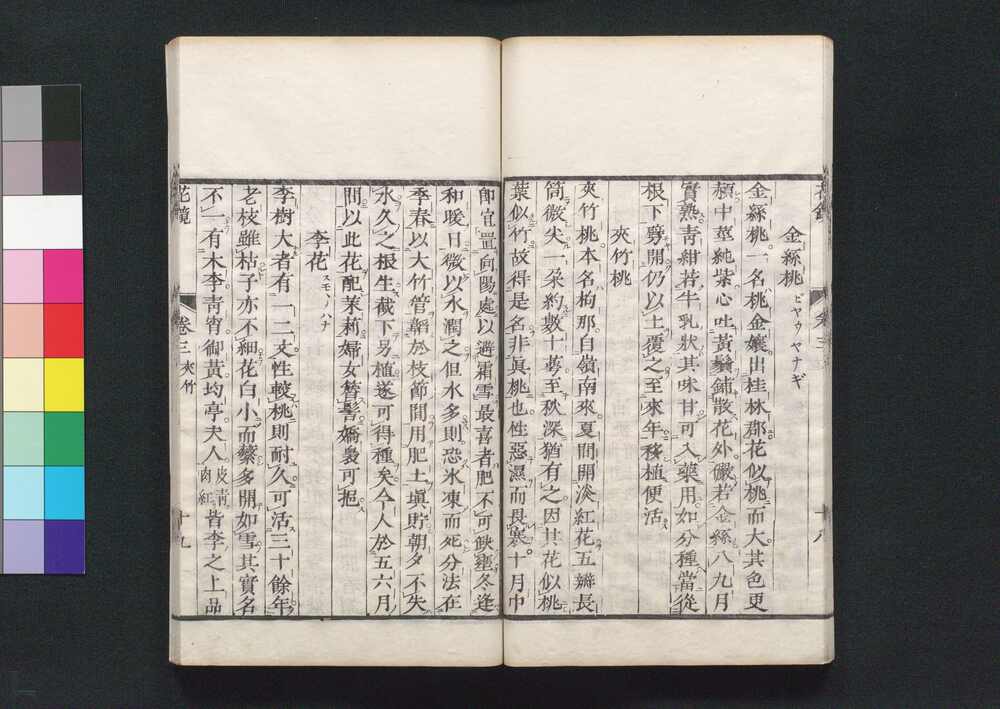 金絲桃 ビヤウヤナギ
金絲桃一名桃金孃出桂林郡花似桃而大其色更
赬中莖純紫心吐黃鬚鋪散花外儼若金絲八九月
實熟青紺若牛乳狀其味甘可入藥用如分種當從
根下劈開仍以土覆之至來年移植便活
夾竹桃
夾竹桃本名枸那自嶺南來夏間開淡紅花五瓣長
筒微尖一朶約數十蕚至秋深猶有之因其花似桃
葉似竹故得是名非眞桃也性惡濕而畏寒十月中
即宜置向陽處以避霜雪最喜者肥不可缺壅冬逢
和暖日微以水潤之但水多則恐氷凍而死分法在
季春以大竹管韜於枝節間用肥土塡貯朝夕不失
水久之根生截下另植遂可得種矣今人於五六月
間以此花配茉莉婦女簪髻嬌裊可挹
李花 スモヽノハナ
李樹大者有一二丈性較桃則耐久可活三十餘年
老枝雖枯子亦不細花白小而蘩多開如雪其實名
不一有木李青宵御黃均亭夫人皮青肉紅皆李之上品
花鏡 卷三 夾竹 十九